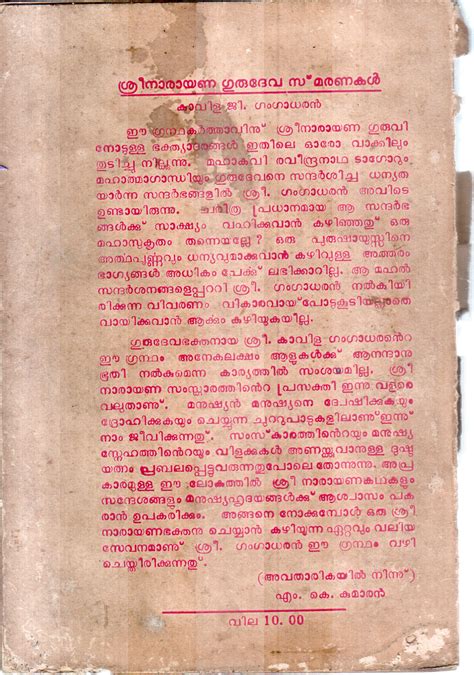 ശ്രീനാരായണ ഗുരുദേവ സ്മരണകൾ
കാവിള ജി. ഗംഗാധരൻ
ഈ ഗ്രന്ഥകർത്താവിനു് ശ്രീനാരായണ ഗുരുവി
നോടുള്ള ഭക്ത്യാദരങ്ങൾ ഇതിലെ ഓരോ വാക്കിലും
തുടിച്ചു നില്ക്കുന്നു. മഹാകവി രവീന്ദ്രനാഥ ടാഗോറും
മഹാത്മാഗാന്ധിയും ഗുരുദേവനെ സന്ദർശിച്ച ധന്യത
യാർന്ന സന്ദർഭങ്ങളിൽ ശ്രീ. ഗംഗാധരൻ അവിടെ
ഉണ്ടായിരുന്നു. ചരിത്ര പ്രധാനമായ ആ സന്ദർഭ
ങ്ങൾക്ക് സാക്ഷ്യം വഹിക്കുവാൻ കഴിഞ്ഞതു് ഒരു
മഹാസുകൃതം തന്നെയല്ലേ? ഒരു പുരുഷായുസ്സിനെ
അർത്ഥപൂർണ്ണവും ധന്യവുമാക്കുവാൻ കഴിവുള്ള അത്തരം
ഭാഗ്യങ്ങൾ അധികം പേക്ക് ലഭിക്കാറില്ല. ആ മഹൽ
സന്ദർശനങ്ങളെപ്പററി ശ്രീ. ഗംഗാധരൻ നൽകിയി
രിക്കുന്ന വിവരണം വികാരവായ്പോടുകൂടിയല്ലാതെ
വായിക്കുവാൻ ആക്കും കഴിയുകയില്ല.
ഗുരുദേവഭക്തനായ ശ്രീ. കാവിള ഗംഗാധരൻെറ
ഈ ഗ്രന്ഥം അനേകലക്ഷം ആളുകൾക്ക് ആനന്ദാനു
ഭൂതി നൽകുമെന്ന കാര്യത്തിൽ സംശയമില്ല. ശ്രീ
നാരായണ സംസ്കാരത്തിൻെറ പ്രസക്തി ഇന്നു വളരെ
വലുതാണു്. മനുഷ്യൻ മനുഷ്യനെ ദ്വേഷിക്കുകയും
ദ്രോഹിക്കുകയും ചെയ്യുന്ന ചുററുപാടുകളിലാണു് ഇന്നു്
നാം ജീവിക്കുന്നതു്. സംസ്കാരത്തിൻെറയും മനുഷ്യ
സ്നേഹത്തിൻെറയും വിളക്കുകൾ അണയ്ക്കുവാനുള്ള ദുഷ്ട
യത്നം പ്രബലപ്പെട്ടുവരുന്നതുപോലെ തോന്നുന്നു. അപ്ര
കാരമുള്ള ഈ ലോകത്തിൽ ശ്രീ നാരായണകഥകളും
സന്ദേശങ്ങളും മനുഷ്യഹൃദയങ്ങൾക്ക് ആശ്വാസം പക
രാൻ ഉപകരിക്കും. അങ്ങനെ നോക്കുമ്പോൾ ഒരു ശ്രീ
നാരായണഭക്തനു ചെയ്യാൻ കഴിയുന്ന ഏററവും വലിയ
സേവനമാണു് ശ്രീ. ഗംഗാധരൻ ഈ ഗ്രന്ഥം വഴി
ചെയ്തിരിക്കുന്നതു്.
(അവതാരികയിൽ നിന്നു്)
എം. കെ. കുമാരൻ
വില 10. 00